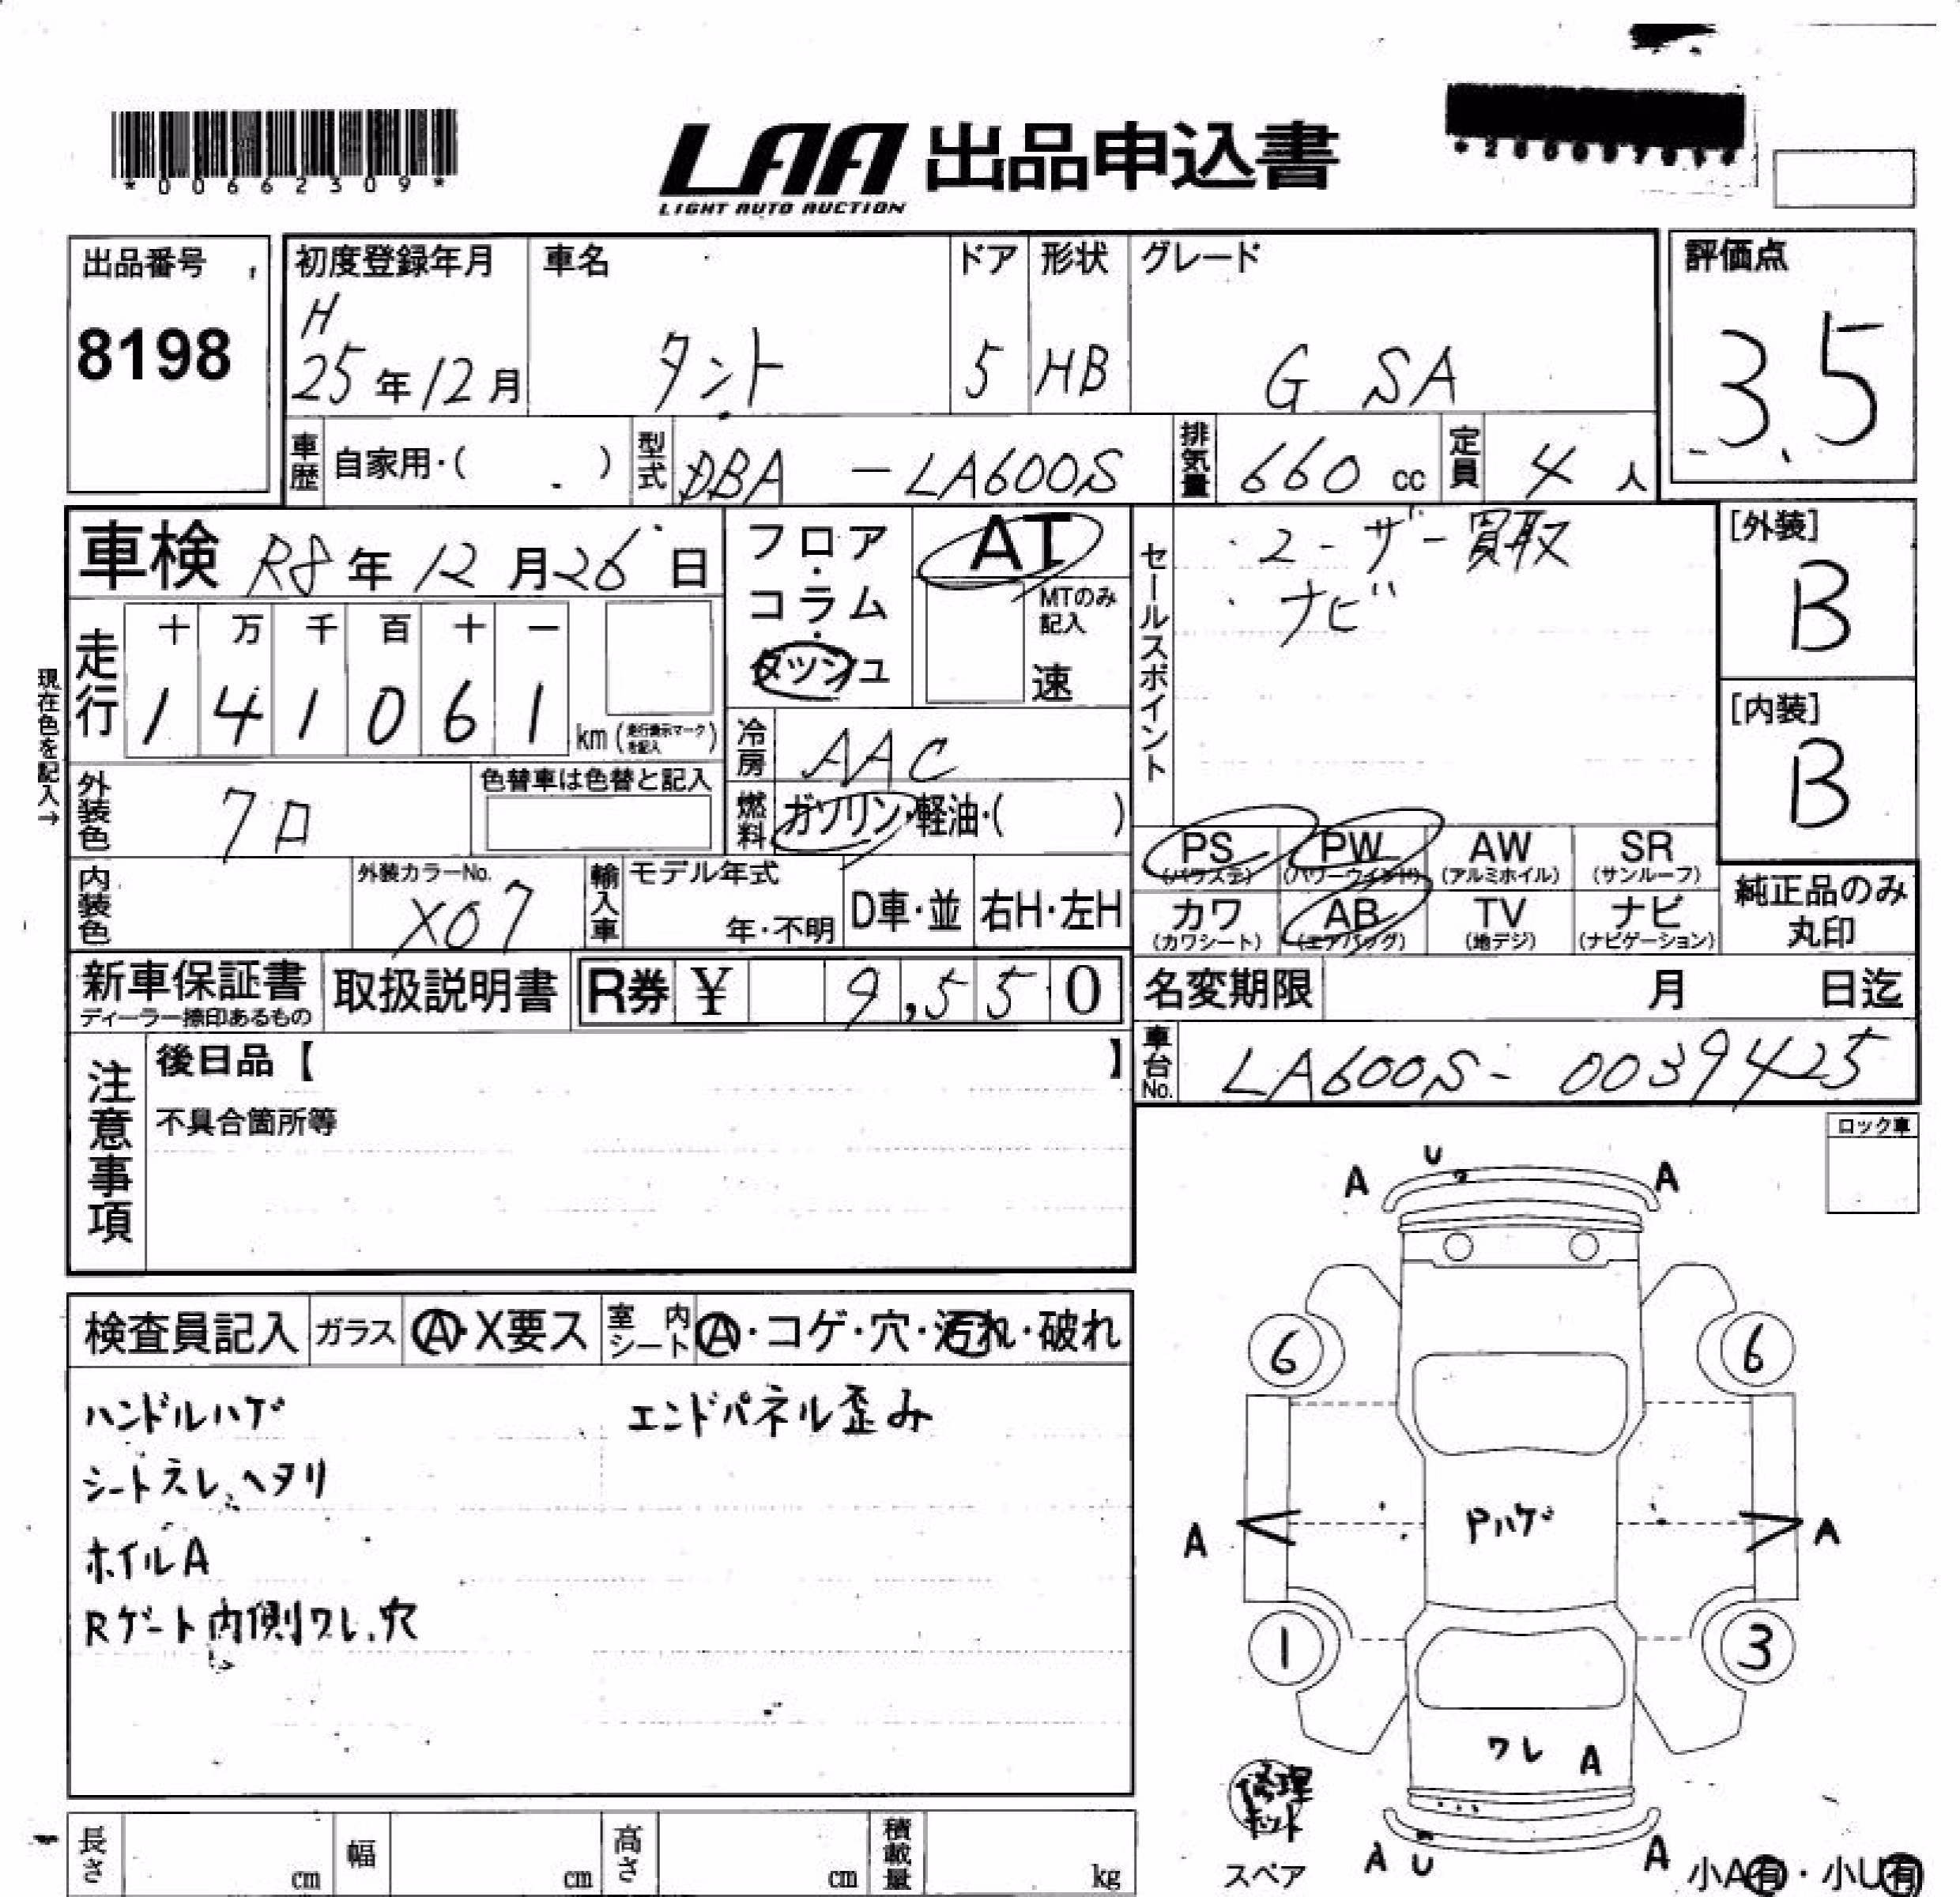 *00662309*
LAA 出品申込書
LIGHT AUTO AUCTION
出品番号
8198
初度登録年月
H
25年12月
車名
タント
ドア
5
形状
HB
グレード
G SA
評価点
3.5
車歴 自家用・( )
型式 DBA - LA600S
排気量 660 cc
定員 4 人
車検 R8年12月26日
フロア・コラム・ダッシュ
AT
MTのみ記入
速
セールスポイント
・ユーザー買取
・ナビ
[外装]
B
[内装]
B
現在色を記入→
走行
十 万 千 百 十 一
1 4 1 0 6 1 km (走行表示マークを記入)
冷房 AAC
燃料 ガソリン・軽油・( )
外装色 クロ
色替車は色替と記入
PS (パワステ)
PW (パワーウインド)
AW (アルミホイル)
SR (サンルーフ)
カワ (カワシート)
AB (エアバッグ)
TV (地デジ)
ナビ (ナビゲーション)
純正品のみ丸印
内装色
外装カラーNo.
X07
輸入車 モデル年式
年・不明
D車・並
右H・左H
新車保証書
ディーラー捺印あるもの
取扱説明書
R券 ¥ 9,550
名変期限 月 日迄
車台No. LA600S- 0039425
注意事項
後日品【 】
不具合箇所等
ロック車
検査員記入 ガラス A・X要ス 室内シート A・コゲ・穴・汚れ・破れ
ハンドルハゲ
エンドパネル歪み
シートスレ、ヘタリ
ホイルA
Rゲート内側ワレ、穴
A U A
6 6
A PハゲA
1 3
ワレ A
修理キット
スペア
A U A
小A有・小U有
長さ cm 幅 cm 高さ cm 積載量 kg